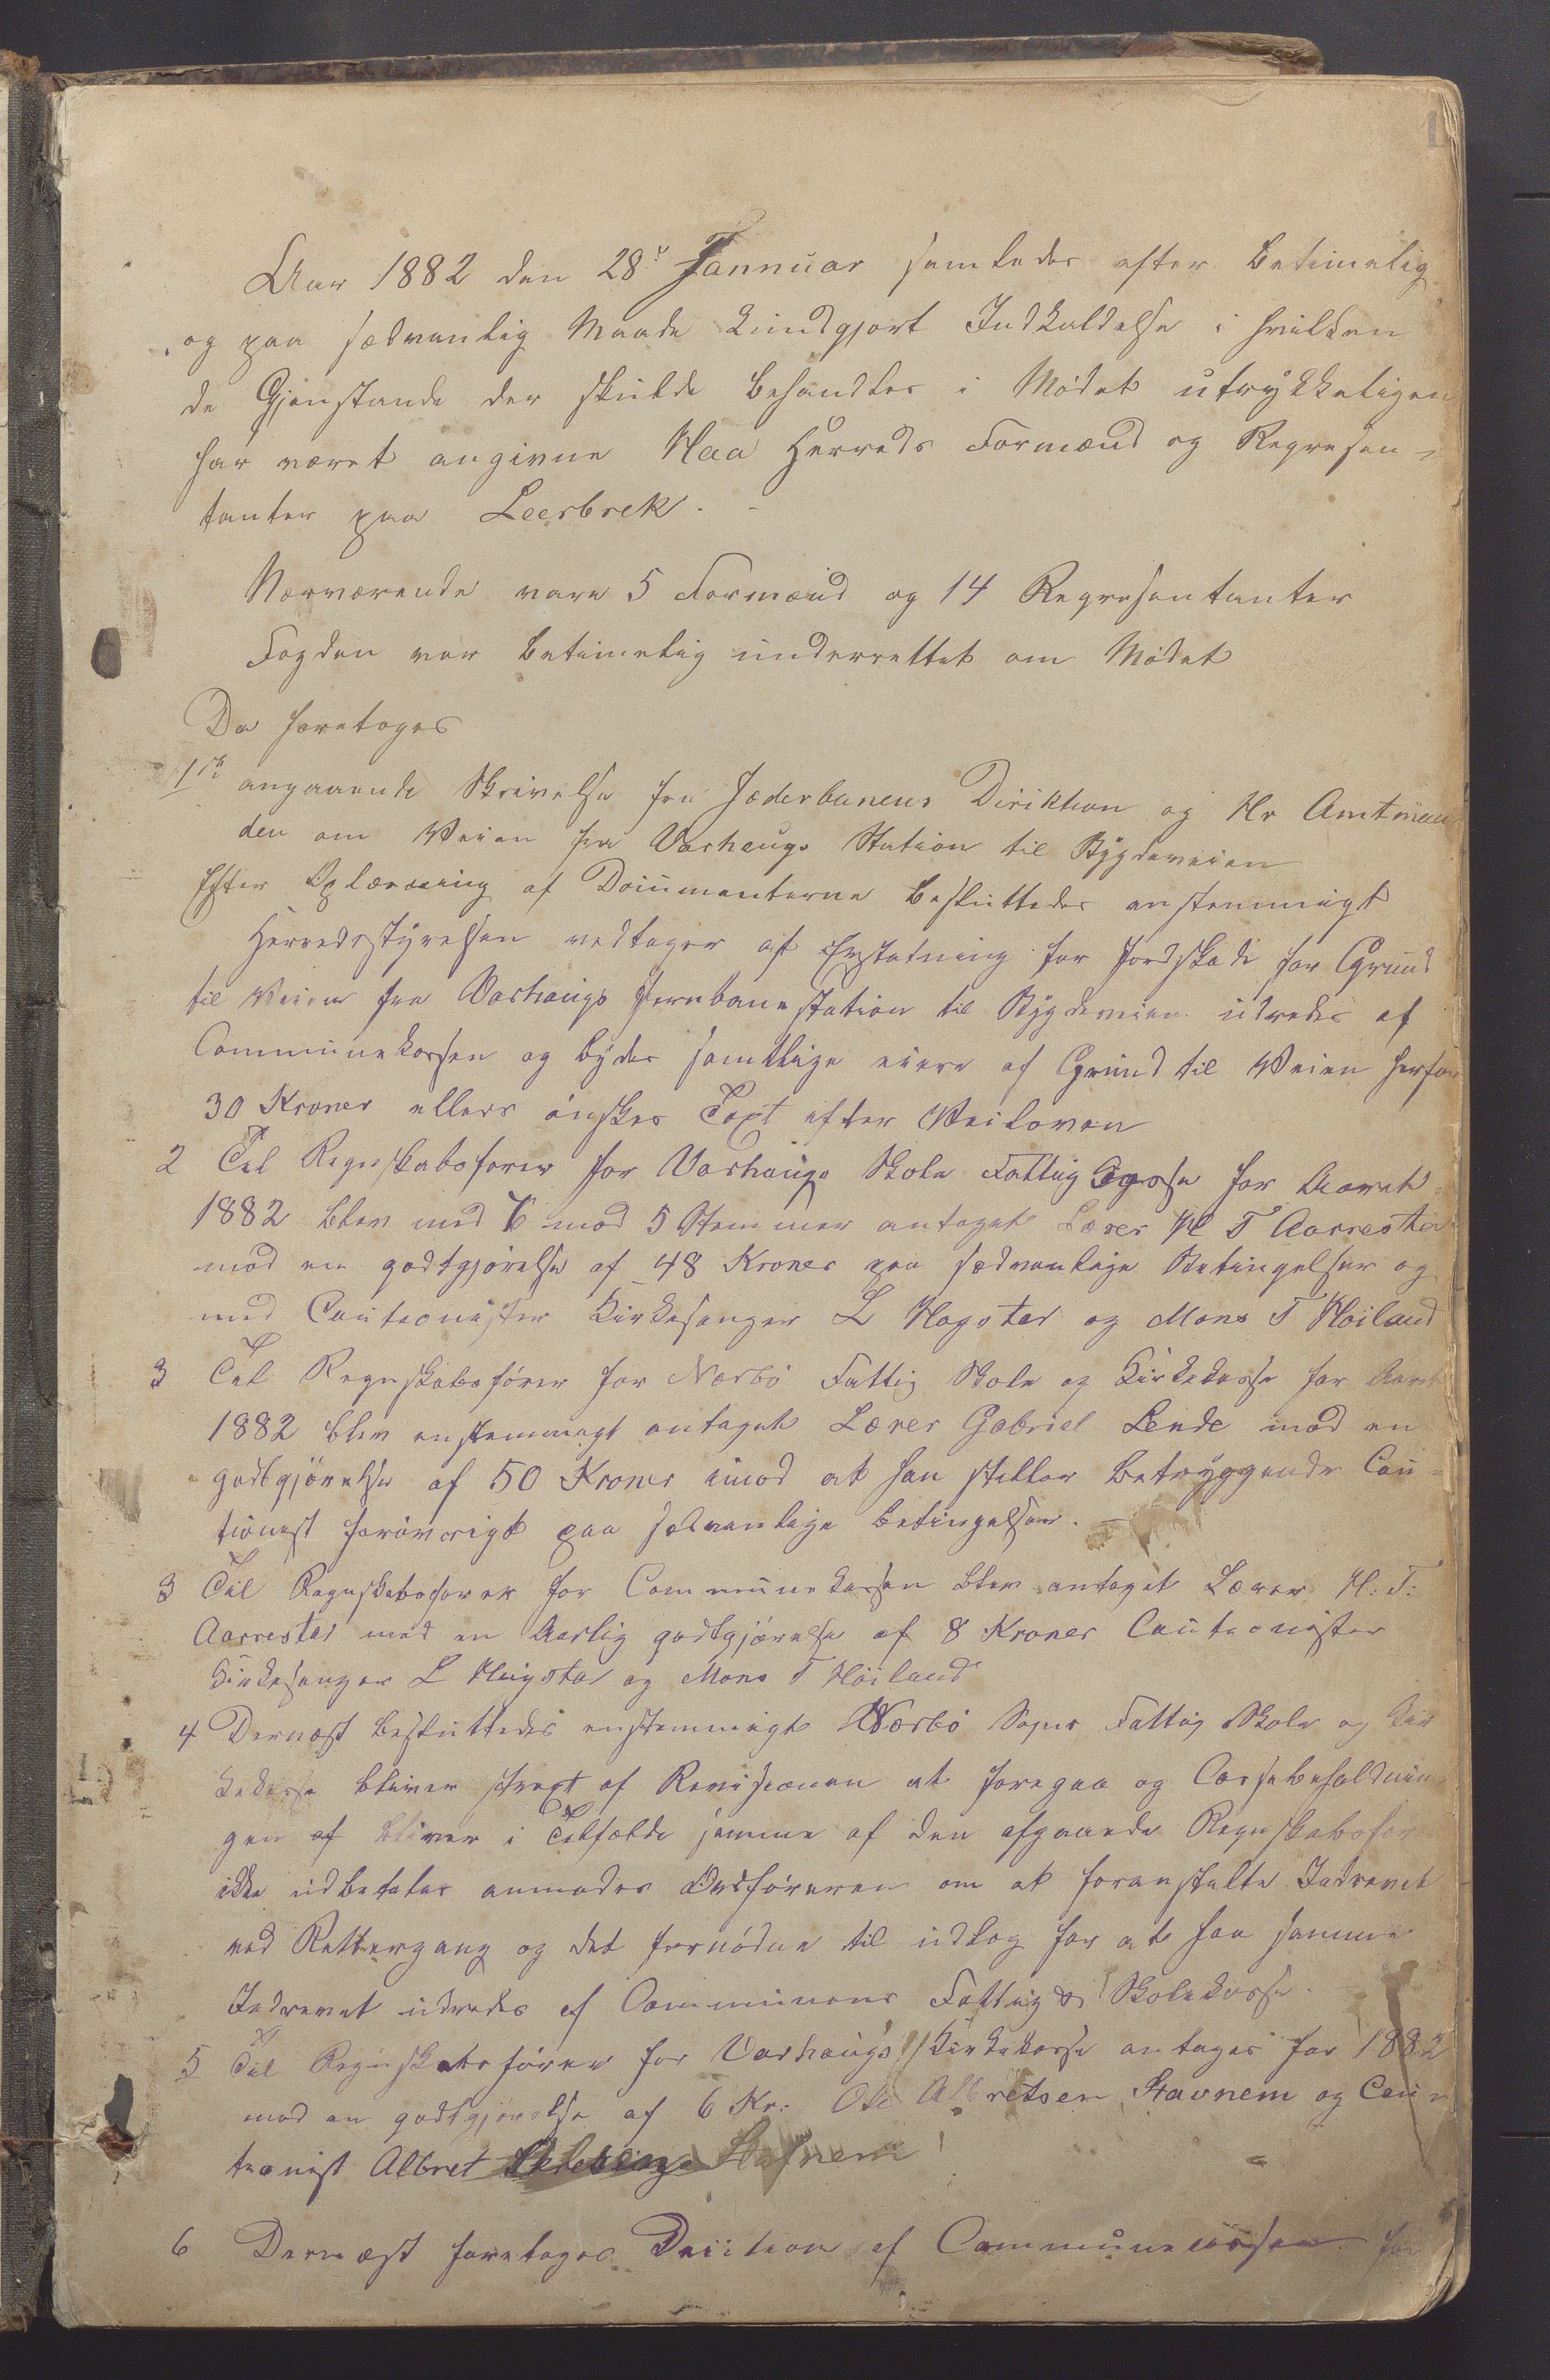 1
Aar 1882 den 28de Jannuar samledes efter betimelig
og paa sædvanlig Maade kundgjort Indkaldelse i hvilken
de Gjenstande der skulde behandles i Mødet utrykkeligen
har været angivne Haa Herreds Formænd og Represen-
tanter paa Leerbrek.
Nærværende vare 5 Formænd og 14 Representanter
Fogden var betimelig underrettet om Mødet
Da foretoges
1ste angaaende Skrivelse fra Jæderbanens Diriktion og Hr Amtman
den om Veien fra Varhaugs Station til Bygdeveien
Efter Oplæsning af Documenterne besluttedes enstemmigt
Herredsstyrelsen vedtager at Erstatning for Jordskade for Grund
til Veien fra Varhaugs Jernbanestation til Bygdeveien udredes af
Communekassen og bydes samtlige eiere af Grund til Veien herfor
30 Kroner ellers ønskes Taxt efter Veiloven
2 Til Regnskabsfører for Varhaugs Skole Fattig for Aaret
1882 blev med 6 mod 5 Stemmer antaget Lærer H T Aarrestad
mod en godtgjørelse af 48 Kroner paa sædvanlige Betingelser og
med Cautionister Kirkesanger L Hogstad og Mons T Høiland
3 Til Regnskabsfører for Nærbø Fattig Skole og Kirkekasse for Aaret
1882 blev enstemmigt antaget Lærer Gabriel Lende mod en
godtgjørelse af 50 Kroner imod at han stiller betryggende Cau-
tionist forøvrigt paa sædvanlige betingelser.
3 Til Regnskabsfører for Communekassen blev antaget Lærer H: T:
Aarrestad med en Aarlig godtgjørelse af 8 Kroner Cautionister
Kirkesanger L Hugstad og Mons T Høiland
4 Dernæst besluttedes enstemmigt Nærbø Sogns Fattig Skole og Kir
kekasse bliver strax af Revisionen at foregaa og Cassebeholdnin
gen af bliver i Tilfælde samme af den afgaaende Regnskabsfører
ikke udbetales anmodes Ordføreren om at foranstalte Indrevet
ved Rettergang og det fornødne til udlæg for at faa samme
Indrevet udredes af Communens Fattig & Skolekasse.
5 Til Regnskabsfører for Varhaugs Kirkekasse antages for 1882
mod en godtgjørelse af 6 Kr: Ole Albretsen Stavnem og Cau-
tionist Albret Stafnem
6 Dernæst foretoges af Communecassen for